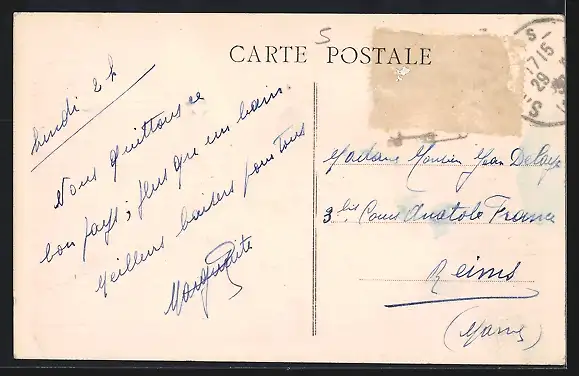 5
CARTE POSTALE
lundi 2h
Nous quittons ce
bon pays; plus que un bain.
Meilleurs baisers pour Tous
Marguerite
Madame Monsieur Jean
3 bis Cours Anatole France
Reims
(Marne)
17 15
29